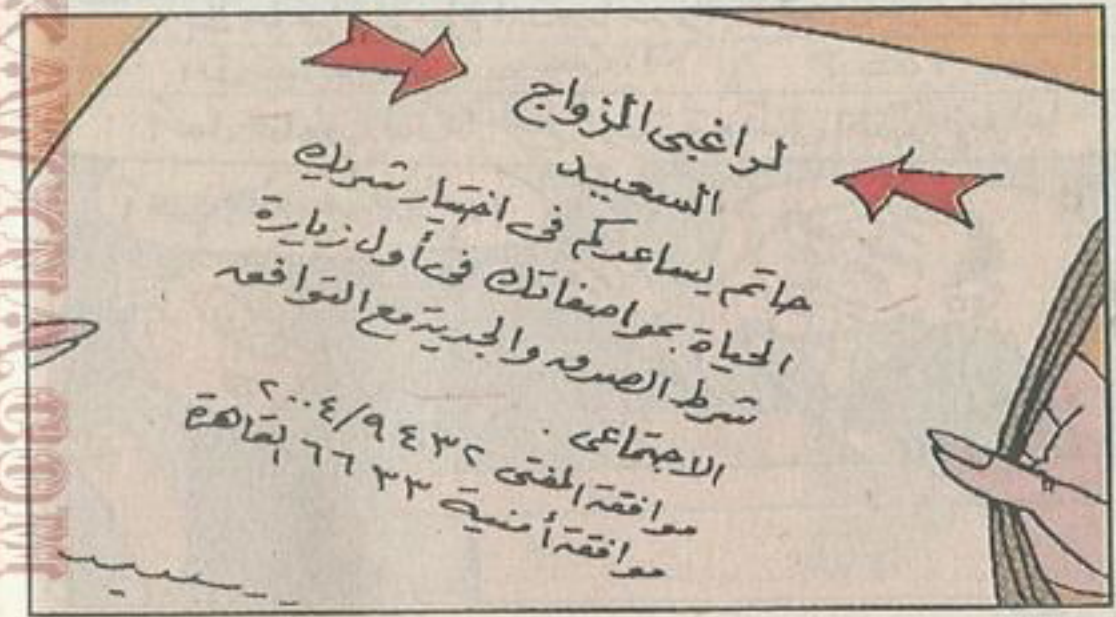 لراغبى الزواج
السعيد
حاتم يساعدكم فى اختيار شريك
الحياة بمواصفاتك فى أول زيارة
شرط الصدق والجدية مع التوافق
الاجتماعى .
موافقة المفتى ٩٤٣٢/٢٠٠٤
موافقة أمنية ٦٦٣٣ القاهرة